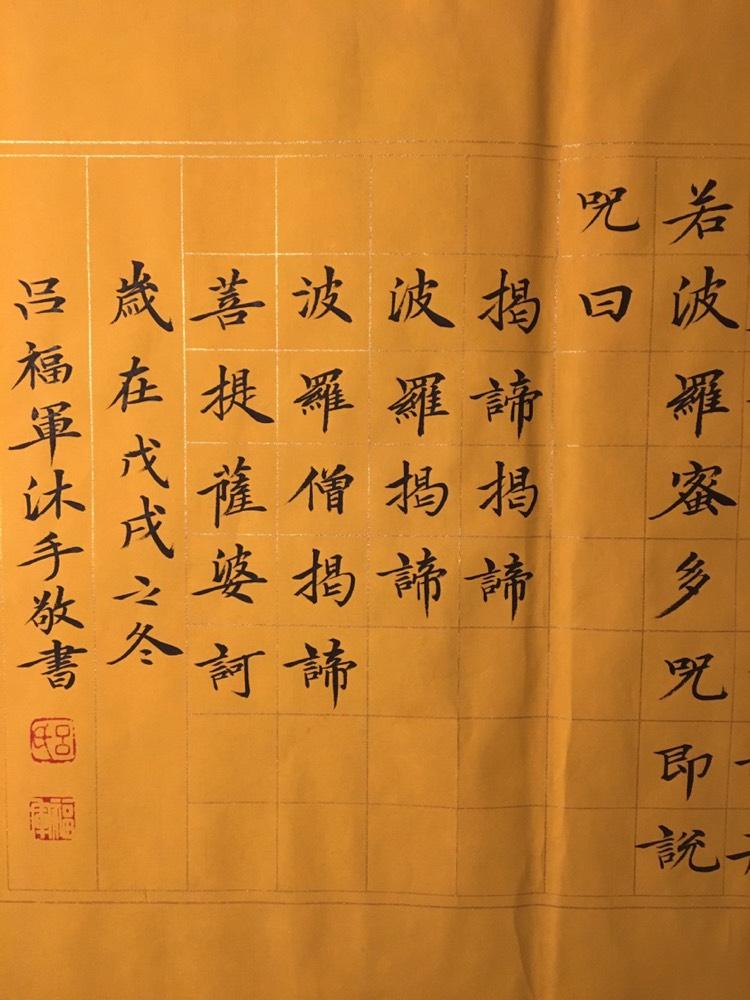 若波羅蜜多咒即說
咒曰
揭諦揭諦
波羅揭諦
波羅僧揭諦
菩提薩婆訶
歲在戊戌之冬
呂福軍沐手敬書
呂氏
福軍